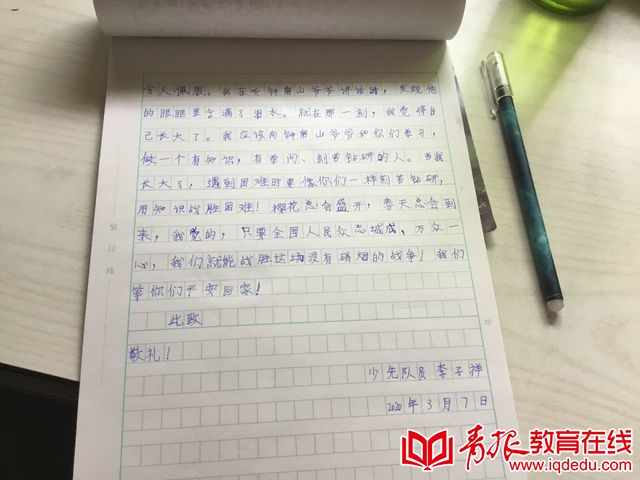 令人佩服。我在听钟南山爷爷讲话时，发现他
的眼眶里含满了泪水。就在那一刻，我觉得自
己长大了。我应该向钟南山爷爷和你们学习，
做一个有知识，有学问、刻苦钻研的人。当我
长大了，遇到困难时要像你们一样刻苦钻研，
用知识战胜困难！樱花总会盛开，春天总会到
来，我觉的，只要全国人民众志城成，万众一
心，我们就能战胜这场没有硝烟的战争！我们
等你们平安回家！
此致
敬礼！
少先队员 李子禅
2020年3月7日
10
青报教育在线
www.iqdedu.com